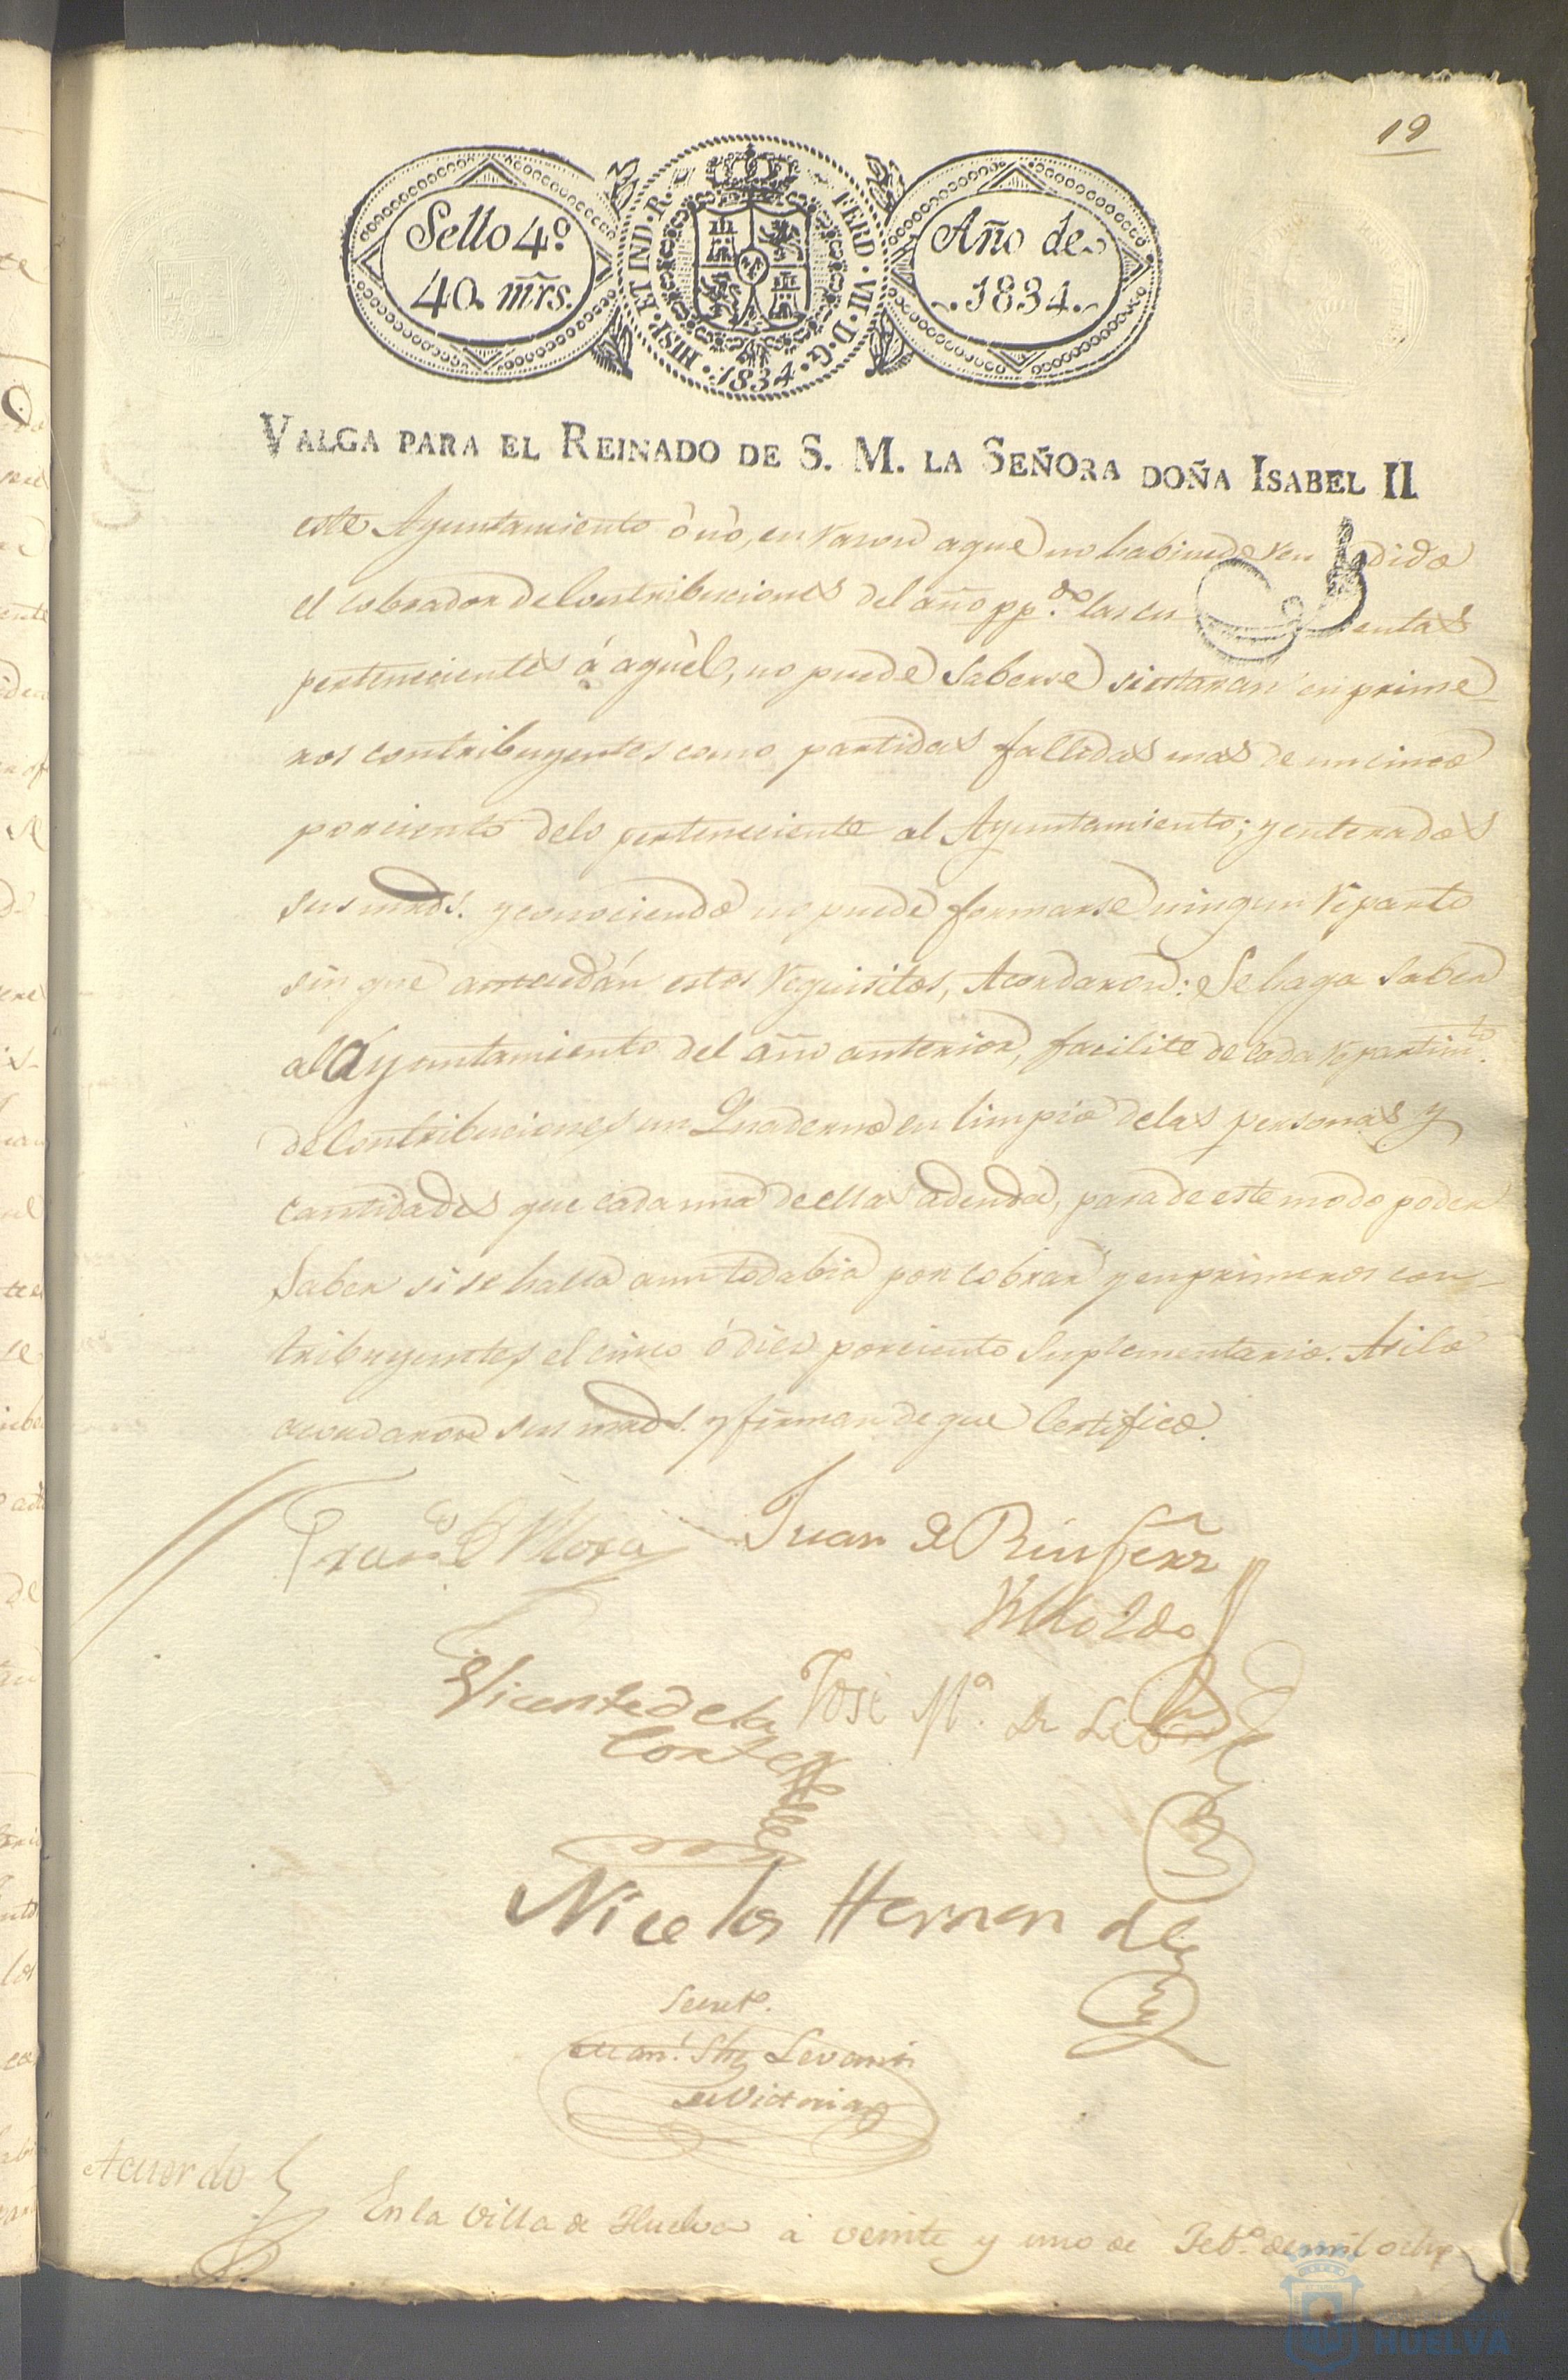 19
Sello 4º
40 mrs.
HISP. ET IND. R. FERD. VII. D. G. 1834.
Año de
1834.
VALGA PARA EL REINADO DE S. M. LA SEÑORA DOÑA ISABEL II
este Ayuntamiento ó nó, en rason aque no habiendo ren dido
el cobrador de Contribuciones del año pp.do las cu entas
pertenecientes á aquel, no puede Saberse si estaran en prime
ros contribuyentes como partidas fallidas mas de un cinco
porciento delo perteneciente al Ayuntamiento; y enterados
sus mrds. y conociendo no puede formarse ningun reparto
sin que antecedán estos requisitos, Acordaron: Se haga saber
al Ayuntamiento del año anterior, facilite de cada repartim.to
de Contribuciones un Quaderno en limpio delas personas y
cantidades que cada una de ellas adeuda, para de este modo poder
Saber si se halla aun todabia por cobrar y en primeros con-
tribuyentes el cinco ó diez porciento Suplementario. Asi lo
acordaron sus mrds. y firman de que Certifico.
Fran.co Mora
Juan
Vicente de la
Cortes
José Mª. de Leon
Nicolas Hernandez
Secret.o
Man.l Shz Levarin
de Victoria
Acuerdo
En la Villa de Huelva á veinte y uno de Feb.o de mil ocho
HUELVA